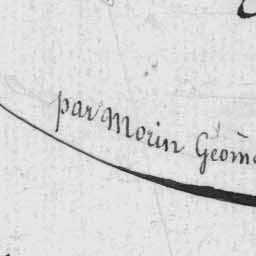 par Morin Geom